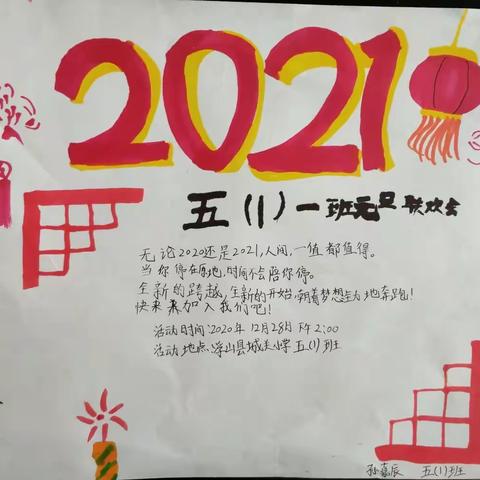 2021
五(1)一班元旦联欢会
无论2020还是2021,人间,一值都值得。
当你停在原地,时间不会陪你停。
全新的跨越,全新的开始,朝着梦想主为地奔跑!
快来来加入我们吧!
活动时间:2020年12月28日下午2:00
活动地点:浮山县城关小学五(1)班
孙嘉辰 五(1)班